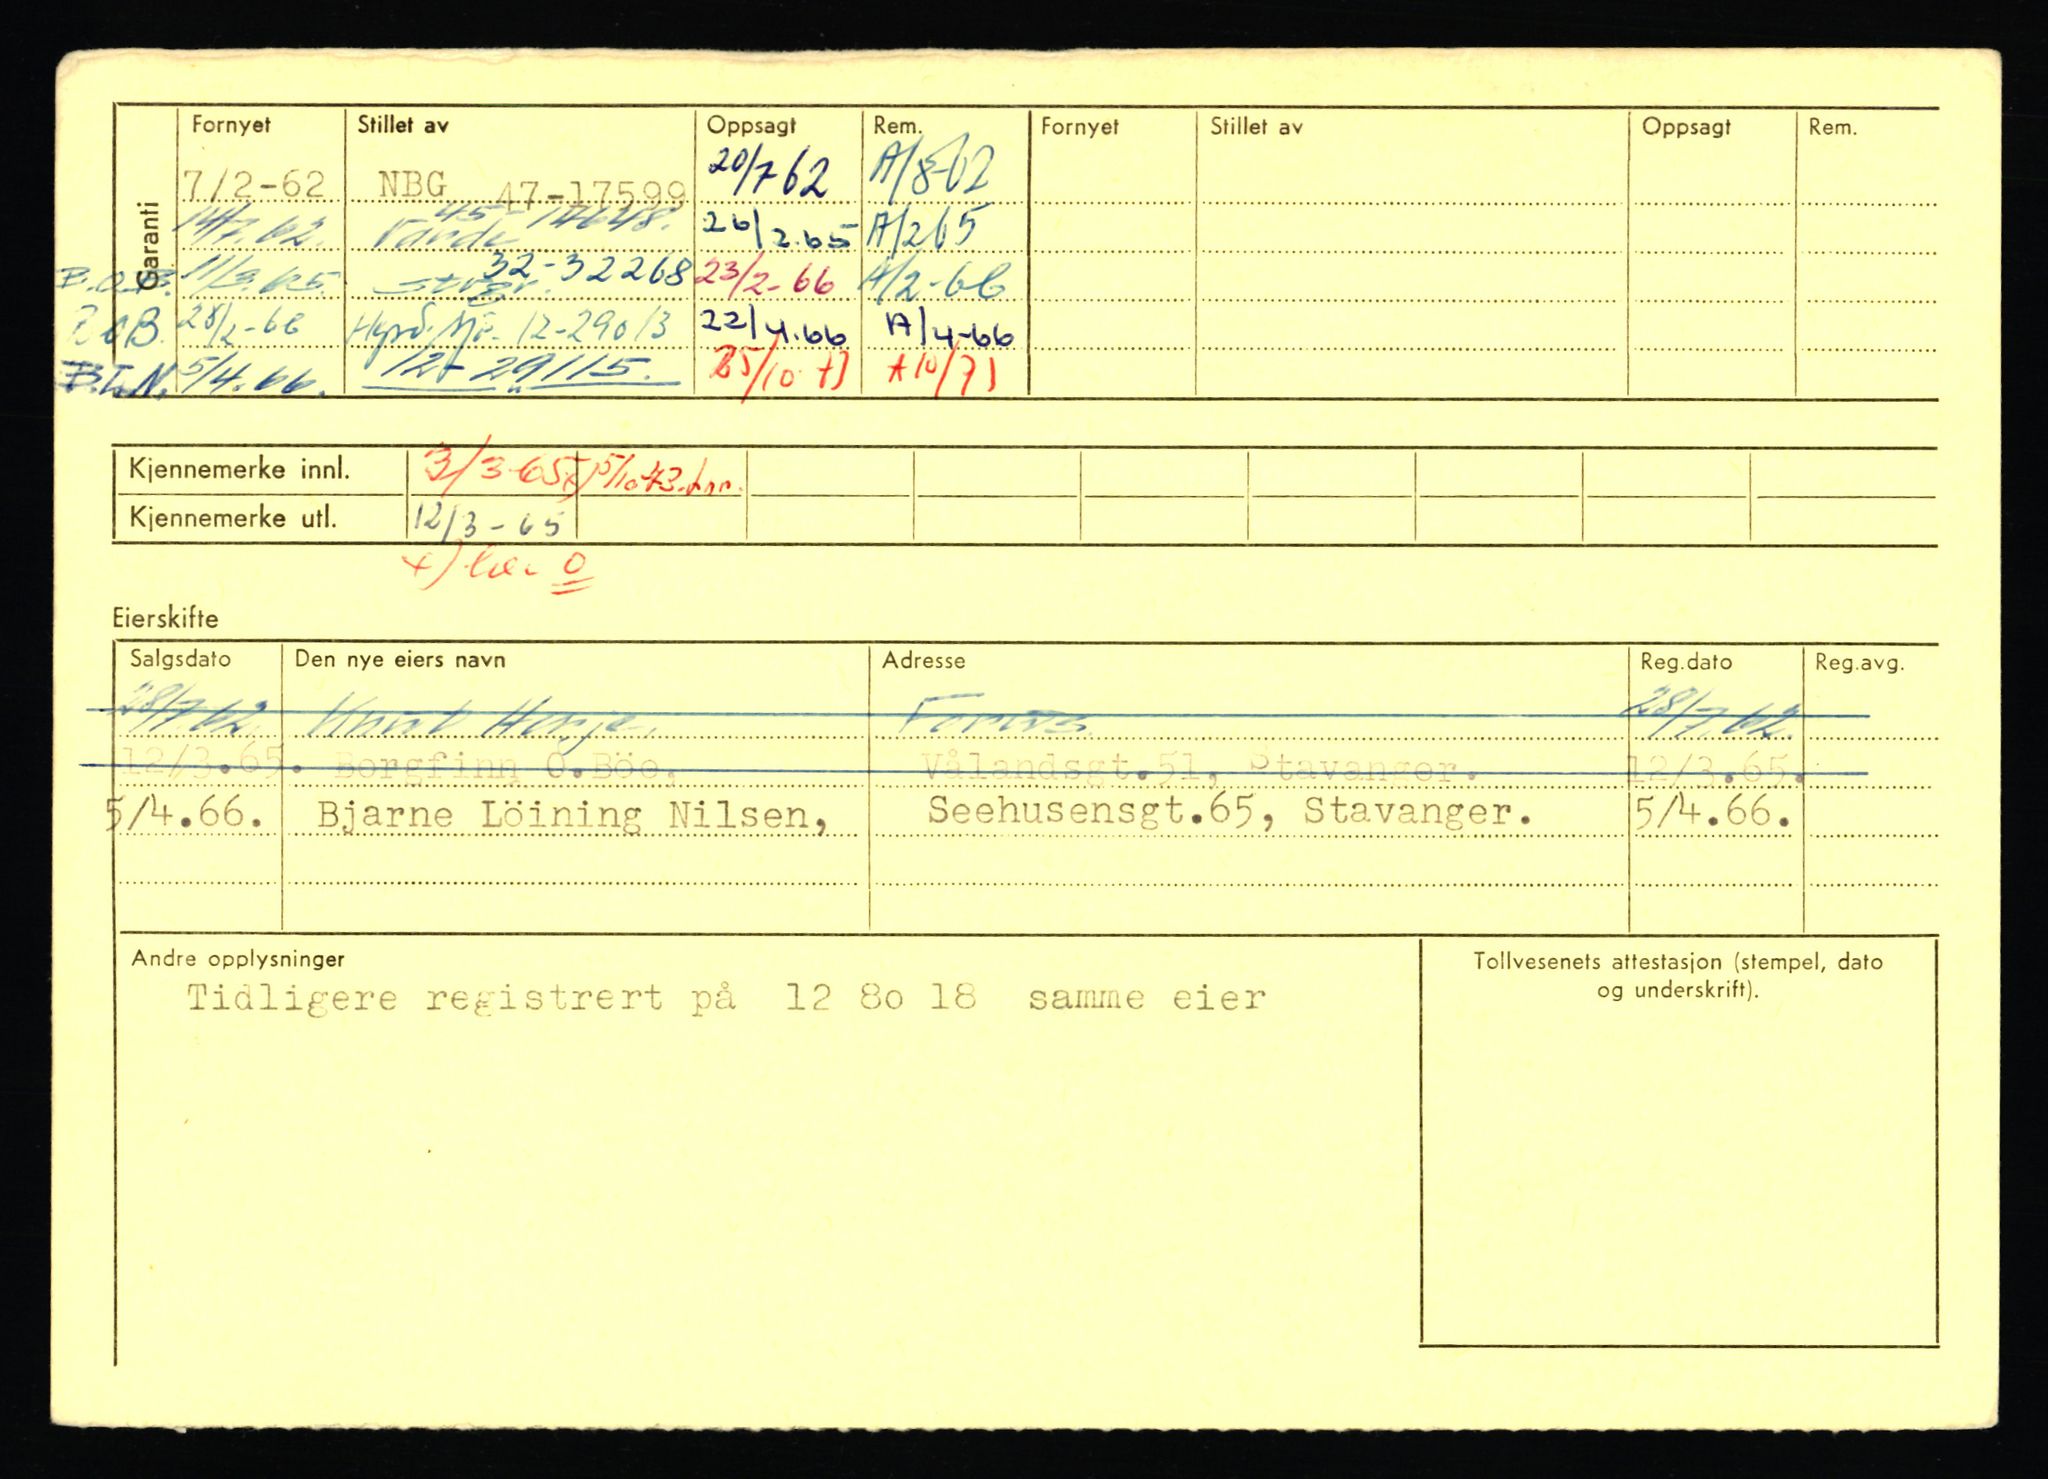 Garanti
Fornyet Stillet av Oppsagt Rem. Fornyet Stillet av Oppsagt Rem.
7/2-62 NBG 47-17599 20/7 62 A/8-62
45-14648. 26/2.65 A/2 65
B.O.B. 11/3.65. 32-32268 23/2-66 A/2-66
B.O.B. 28/2-66 12-29013 22/4.66 A/4-66
B.L.N. 5/4.66. 12-29115. A 10/71
Kjennemerke innl. 3/3-65 x)
Kjennemerke utl. 12/3-65
x)
Eierskifte
Salgsdato Den nye eiers navn Adresse Reg.dato Reg.avg.
28/7.62. Knut Forus 28/7.62.
12/3.65. Borgfinn O.Böe, Vålandsgt.51, Stavanger. 12/3.65.
5/4.66. Bjarne Löining Nilsen, Seehusensgt.65, Stavanger. 5/4.66.
Andre opplysninger
Tidligere registrert på 12 80 18 samme eier
Tollvesenets attestasjon (stempel, dato
og underskrift).